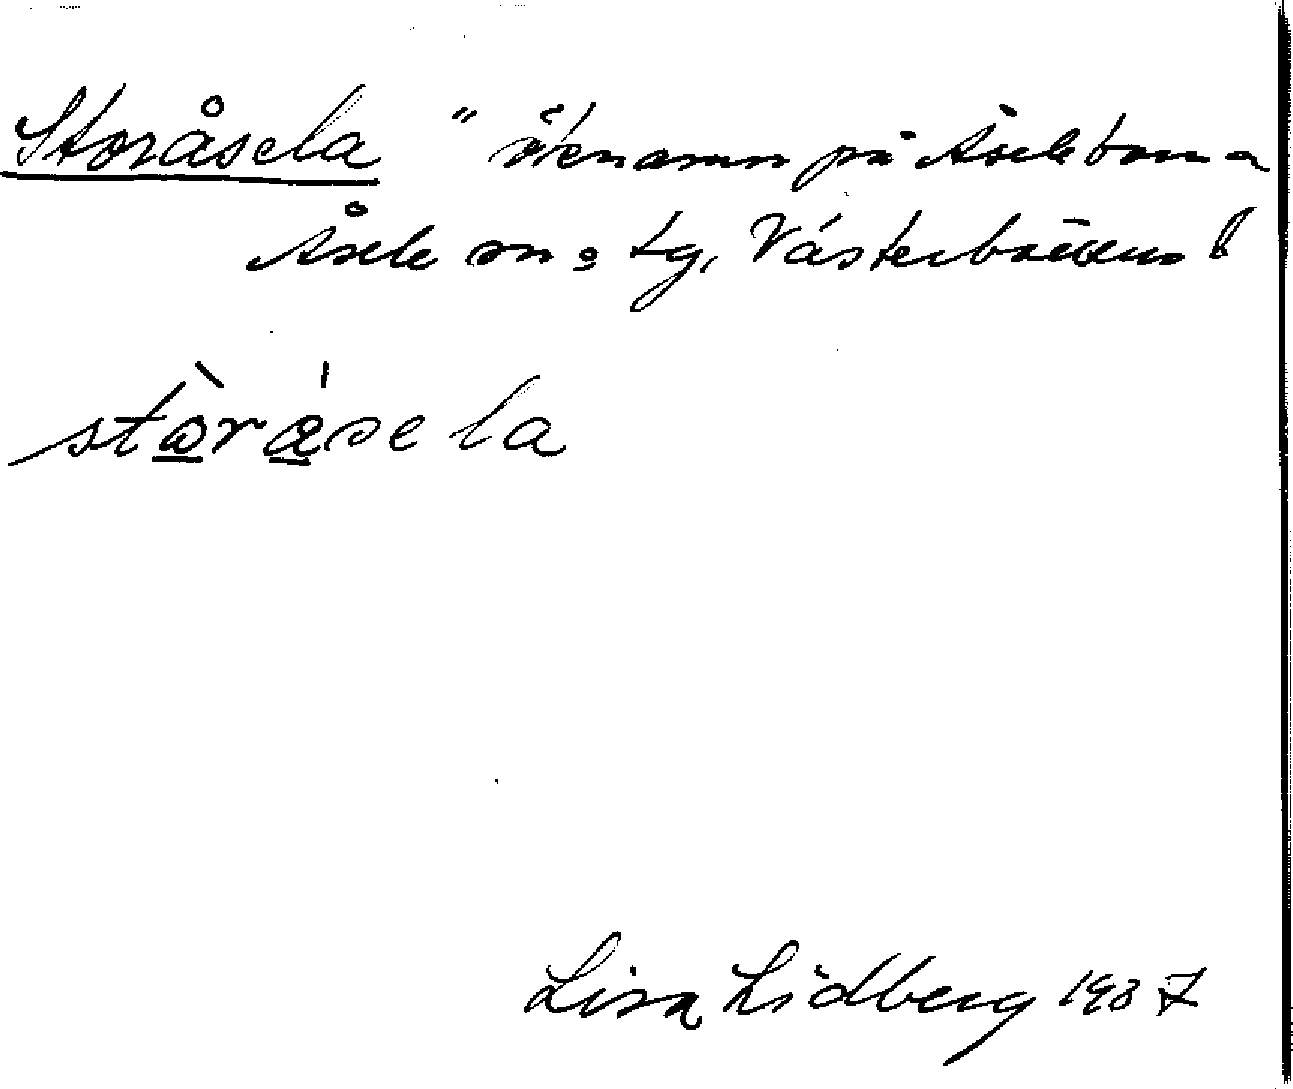 Storåsela " öknamn på Åseleborna
Åsele sn o tg, Västerbottens l
stòrǽsela
Lisa Lidberg 1937